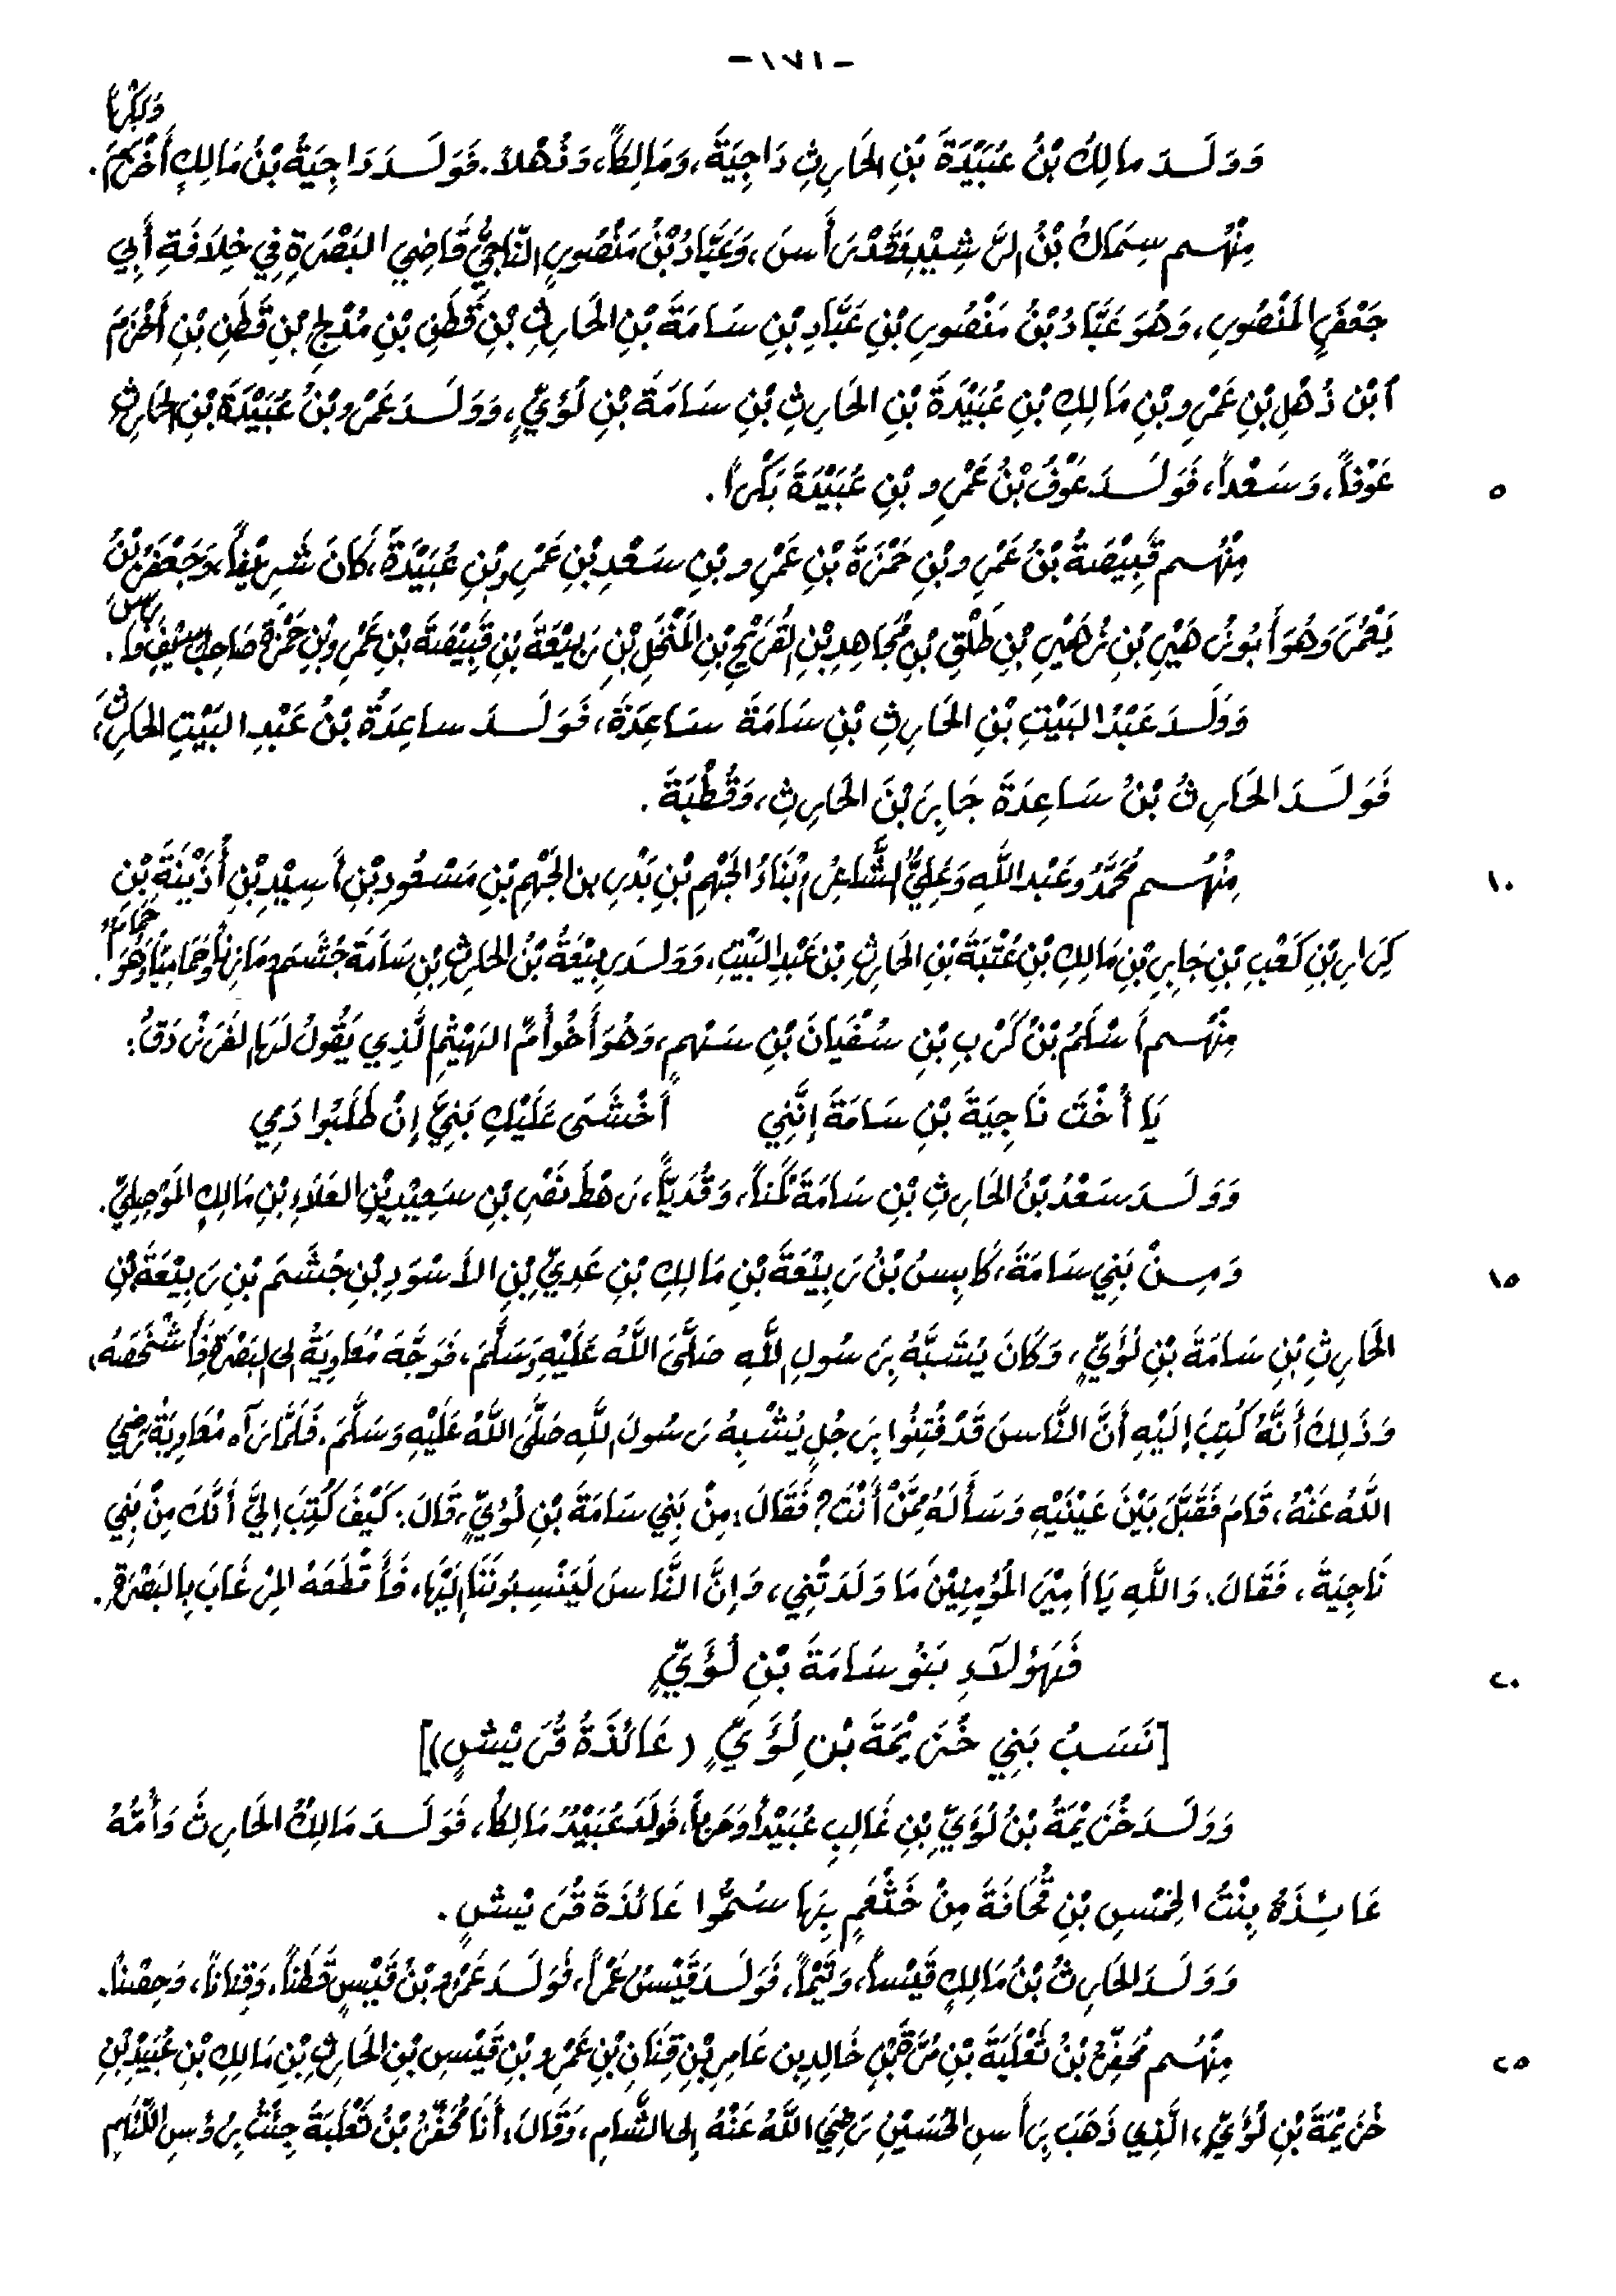 -١٧١-
وَوَلَدَ مالِكُ بْنُ عُبَيْدَةَ بْنِ الحَارِثِ دَاجِيَةَ، وَمَالِكاً، وَذُهْلاً. فَوَلَدَ دَاجِيَةُ بْنُ مَالِكٍ أَخْرَمَ وَبَكْراً.
مِنْهُم سِمَاكُ بْنُ الرَّشِيْدِ فَقَدْ رَأَسَ، وَعَبَّادُ بْنُ مَنْصُورٍ النَّاجِيُّ قَاضِي البَصْرَةِ فِي خِلَافَةِ أَبِي
جَعْفَرٍ المَنْصُورِ، وَهُوَ عَبَّادُ بْنُ مَنْصُورِ بْنِ عَبَّادِ بْنِ سَامَةَ بْنِ الحَارِثِ بْنِ قَطَنِ بْنِ مُدْلِجِ بْنِ قَطَنِ بْنِ أَخْرَمَ
ابْنِ ذُهْلِ بْنِ عَمْرِو بْنِ مَالِكِ بْنِ عُبَيْدَةَ بْنِ الحَارِثِ بْنِ سَامَةَ بْنِ لُؤَيٍّ، وَوَلَدَ عَمْرُو بْنُ عُبَيْدَةَ بْنِ الحَارِثِ
عَوْفاً، وَسَعْداً، فَوَلَدَ عَوْفُ بْنُ عَمْرِو بْنِ عُبَيْدَةَ بَكْراً. ٥
مِنْهُم قَبِيْصَةُ بْنُ عَمْرِو بْنِ حَمْزَةَ بْنِ عَمْرِو بْنِ سَعْدِ بْنِ عَمْرِو بْنِ عُبَيْدَةَ، كَانَ شَرِيْفاً، وَجَعْفَرُ بْنُ
يَعْمُرَ وَهُوَ أَبُو زُهَيْرِ بْنِ زُهَيْرِ بْنِ طَلْقِ بْنِ مُجَاهِدِ بْنِ القُرَيْحِ بْنِ المُنْخَلِ بْنِ رَبِيْعَةَ بْنِ قَبِيْصَةَ بْنِ عَمْرِو بْنِ حَمْزَةَ صَاحِبُ
وَوَلَدَ عَبْدُ البَيْتِ بْنِ الحَارِثِ بْنِ سَامَةَ سَاعِدَةَ، فَوَلَدَ ساعِدَةُ بْنُ عَبْدِ البَيْتِ الحَارِثَ،
فَوَلَدَ الحَارِثُ بْنُ سَاعِدَةَ جَابِرَ بْنَ الحَارِثِ، وَقُطْبَةَ.
مِنْهُم مُحَمَّدُ وعَبْدُ اللَّهِ وَعَلِيٌّ الشَّاعِرُ ابْنَاءُ الجَهْمِ بْنِ بَدْرِ بن الجَهْمِ بْنِ مَسْعُودِ بْنِ أَسِيْدِ بْنِ أُذَيْنَةَ بْنِ ١٠
كِرَارِ بْنِ كَعْبِ بْنِ جَابِرِ بْنِ مَالِكِ بْنِ عُتْبَةَ بْنِ الحَارِثِ بْنِ عَبْدِ البَيْتِ، وَوَلَدَ رَبِيْعَةُ بْنُ الحَارِثِ بْنِ سَامَةَ جُشَمَ وَمَازِناً وَحَمَامِيّاً وَهُوَ حَمَامٌ.
مِنْهُم أَسْلَمُ بْنُ كَرْبِ بْنِ سُفْيَانَ بْنِ سَهْمٍ، وَهُوَ أَخُو أُمِّ الهَيْثَمِ الَّذِي يَقُولُ لَهَا الفَرَزْدَقُ:
يَا أُخْتَ نَاجِيَةَ بْنِ سَامَةَ إِنَّنِي أَخْشَى عَلَيْكِ بَنِيَّ إِنْ طَلَبُوا دَمِي
وَوَلَدَ سَعْدُ بْنُ الحَارِثِ بْنِ سَامَةَ وَقُدَيّاً، رَهْطَ نَصْرِ بْنِ سَعِيْدِ بْنِ العَلَاءِ بْنِ مَالِكٍ المَوْصِلِيِّ.
وَمِنْ بَنِي سَامَةَ، كَابِسُ بْنُ رَبِيْعَةَ بْنِ مَالِكِ بْنِ عَدِيِّ بْنِ الأَسْوَدِ بْنِ جُشَمَ بْنِ رَبِيْعَةَ بْنِ ١٥
الحَارِثِ بْنِ سَامَةَ بْنِ لُؤَيٍّ، وَكَانَ يُشَبَّهُ بِرَسُولِ اللَّهِ صَلَّى اللَّهُ عَلَيْهِ وَسَلَّمَ، فَوَجَّهَ مُعَاوِيَةُ إلى البَصْرَةِ فَأَشْخَصَهُ،
وَذَلِكَ أَنَّهُ كُتِبَ إِلَيْهِ أَنَّ النَّاسَ قَدْ فُتِنُوا بِرَجُلٍ يُشْبِهُ رَسُولَ اللَّهِ صَلَّى اللَّهُ عَلَيْهِ وَسَلَّمَ. فَلَمَّا رَآه مُعَاوِيَةُ رَضِيَ
اللَّهُ عَنْهُ، قَامَ فَقَبَّلَ بَيْنَ عَيْنَيْهِ وَسَأَلَهُ مِمَّنْ أَنْتَ؟ فَقَالَ: مِنْ بَنِي سَامَةَ بْنِ لُؤَيٍّ، قَالَ: كَيْفَ كُتِبَ إِلَيَّ أَنَّكَ مِنْ بَنِي
نَاجِيَةَ، فَقَالَ: وَاللَّهِ يَا أَمِيْرَ المُؤْمِنِيْنَ مَا وَلَدَتْنِي، وَإِنَّ النَّاسَ لَيَنْسِبُونَنَا إِلَيْهَا، فَأَقْطَعَهُ المِرْغَابَ بِالبَصْرَةِ.
فَهَؤُلَاءِ بَنُو سَامَةَ بْنِ لُؤَيٍّ ٢٠
[نَسَبُ بَنِي خُزَيْمَةَ بْنِ لُؤَيٍّ (عَائِذَةُ قُرَيْشٍ)]
وَوَلَدَ خُزَيْمَةُ بْنُ لُؤَيِّ بْنِ غَالِبٍ عُبَيْداً وَحَرْباً، فَوَلَدَ عُبَيْدٌ مَالِكاً، فَوَلَدَ مَالِكٌ الحَارِثَ وَأُمُّهُ
عَائِذَةُ بِنْتُ الخِمْسِ بْنِ قُحَافَةَ مِنْ خَثْعَمٍ بِهَا سُمُّوا عَائِذَةَ قُرَيْشٍ.
وَوَلَدَ الحَارِثُ بْنُ مَالِكٍ قَيْساً، وَتَيْماً، فَوَلَدَ قَيْسٌ عَمْراً، فَوَلَدَ عَمْرُو بْنُ قَيْسٍ قَطَناً، وَقَنَاناً، وَحِصْناً.
مِنْهُم مُحَفِّزُ بْنُ ثَعْلَبَةَ بْنِ مُرَّةَ بْنِ خَالِدِ بن عَامِرِ بْنِ قَنَانِ بْنِ عَمْرِو بْنِ قَيْسِ بْنِ الحَارِثِ بْنِ مَالِكِ بْنِ عُبَيْدِ بْنِ ٢٥
خُزَيْمَةَ بْنِ لُؤَيٍّ، الَّذِي ذَهَبَ بِرَأْسِ الحُسَيْنِ رَضِيَ اللَّهُ عَنْهُ إلى الشَّامِ، وَقَالَ: أَنَا مُحَفِّزُ بْنُ ثَعْلَبَةَ جِئْتُ بِرُؤُسِ اللِّئَامِ